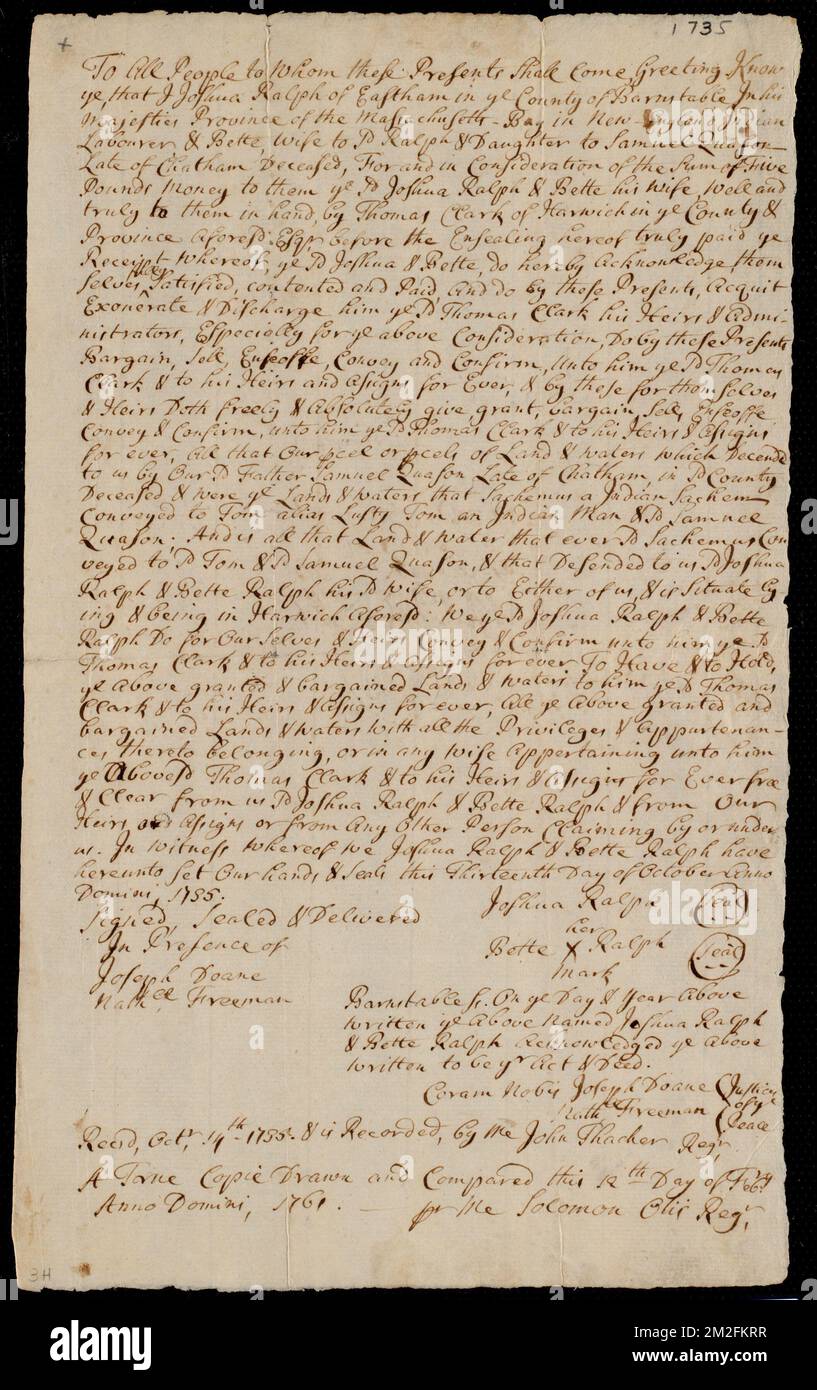 1735
+
To All People to Whom these Presents Shall Come, Greeting Know
ye, that I Joshua Ralph of Eastham in ye County of Barnstable In his
Majesties Province of the Massachusetts-Bay in New-England Indian
Labourer & Bette, Wife to sd Ralph & Daughter to Samuel Quason
Late of Chatham Deceased, For and in Consideration of the Sum of Five
Pounds Money to them ye sd Joshua Ralph & Bette his Wife, Well and
truly to them in hand, by Thomas Clark of Harwich in ye County &
Province aforesd: Esqr, before the Ensealing hereof truly paid ye
Receipt Whereof, ye sd Joshua & Bette, do hereby acknowledge, them
selves fully Satisfied, contented and Paid And do by these Presents, acquit
Exonerate & Discharge him ye sd Thomas Clark his Heirs & admini-
nistrators, Especially for ye above Consideration, Do by these Presents
Bargain, Sell, Enfeoffe, Convey and Confirm, unto him ye sd Thomas
Clark & to his Heirs and assigns for Ever, & by these for themselves
& Heirs Doth freely & absolutely give, grant, bargain, Sell, Enfeoffe
Convey & Confirm, unto him ye sd Thomas Clark & to his Heirs & assigns
for ever, all that Our pcel or pcels of Land & Waters which Decended
to us by Our sd Father Samuel Quason Late of Chatham, in sd County
Deceased & were ye Lands & Waters that Sachemus a Indian Sachem
Conveyed to Tom alias Lusty Tom an Indian Man & sd Samuel
Quason; And is all that Land & Water that ever sd Sachemus Con
veyed to sd Tom & sd Samuel Quason, & that Desended to us sd Joshua
Ralph & Bette Ralph his sd Wife, or to Either of us, & is Situate ly
ing & being in Harwich aforesd: We ye sd Joshua Ralph & Bette
Ralph Do for Our Selves & Heirs Convey & Confirm unto him ye sd
Thomas Clark & to his Heirs & assigns forever, To Have & to Hold,
ye above granted & bargained Lands & Waters to him ye sd Thomas
Clark & to his Heirs & assigns for ever, all ye above granted and
bargained Lands & Waters With all the Privileges & appurtenan-
ces thereto belonging, or in any Wise appertaining unto him
ye Abovesd Thomas Clark & to his Heirs & assigns for Ever free
& Clear from us sd Joshua Ralph & Bette Ralph & from Our
Heirs and assigns or from any Other Person Claiming by or under
us. In Witness Whereof We Joshua Ralph & Bette Ralph have
hereunto set Our hands & Seals this Thirteenth Day of October Anno
Domini, 1735.
Joshua Ralph (Seal)
Signed, Sealed & Delivered
her
In Presence of
Bette X Ralph (Seal)
mark
Joseph Doane
Nathll Freeman
Barnstable Ss. On ye Day & Year Above
Written ye above Named Joshua Ralph
& Bette Ralph Acknowledged ye above
Written to be yr Act & Deed.
Coram Nobis Joseph Doane (Justices
Nathll Freeman of ye
Peace
Recd, Octr, 14th 1735. & is Recorded, by Me John Thacher Regr,
A True Copie Drawn and Compared this 12th Day of Febry
Anno Domini, 1761. pr Me Solomon Otis Regr,
3H
alamy
Image ID: 2M2FKRR
www.alamy.com